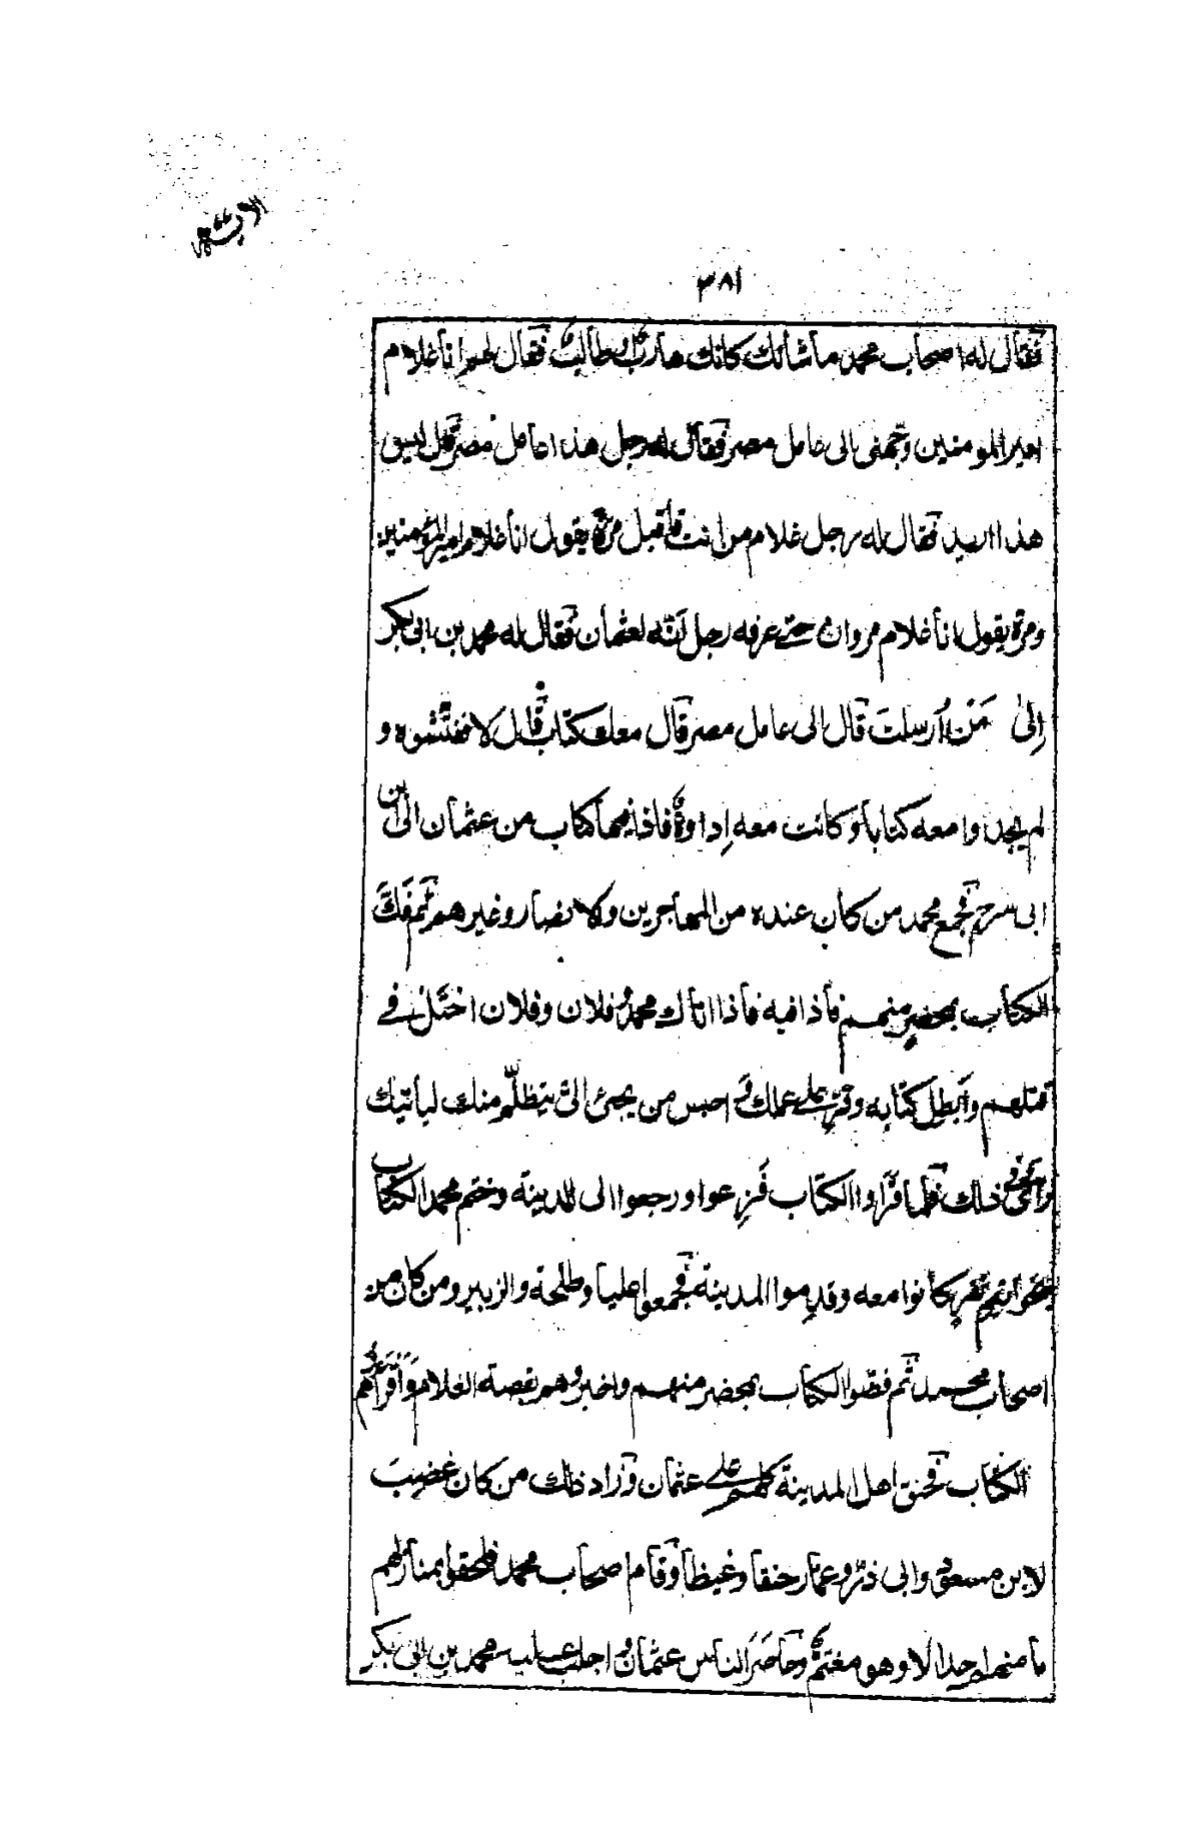 ٣٨١
فقال له اصحاب محمد ما شأنك كانك هارب او طالب فقال لهم انا غلام
امير المومنين وجهني الى عامل مصر فقال له رجل هذا عامل مصر قال ليس
هذا اريد فقال له رجل غلام من انت فاقبل مرة يقول انا غلام امير المؤمنين
ومرة يقول انا غلام مروان حتى عرفه رجل انه لعثمان فقال له محمد بن ابى بكر
اِلىٰ مَنْ اُرسلتَ قال الى عامل مصر قال معك كتاب قال لا ففتّشوه و
لم يجدوا معه كتابا وكانت معه اِداوة فاذا فيها كتاب من عثمان الى ابن
ابى سرح فجمع محمد من كان عنده من المهاجرين والانصار وغيرهم ثم فَكَّ
الكتاب بمحضرٍ منهم فاذا فيه فاذا اتاك محمد وفلان وفلان احتَلْ فے
قتلهم واَبطِل كتابه وقرّ على عملك و احبس من يجئ الىّ يتظلّم منك لياتيك
رأيى فى ذلك فلما قرأوا الكتاب فَزِعوا ورجعوا الى المدينة وختم محمد الكتاب
بخواتيم نفر كانوا معه وقدِموا المدينة فجمعوا عليا وطلحة والزبير ومن كان من
اصحاب محمد ثم فضّوا الكتاب بمحضر منهم واخبروهم بقصة الغلام واَقرأهم
الكتاب فحنق اهل المدينة كلهم على عثمان وزاد ذلك من كان غضِبَ
لابن مسعود وابى ذرّ وعمّار حنقا وغيظا وقام اصحاب محمد فلحقوا بمنازلهم
ما منهم احد الا وهو مغتمٌّ وحاصَرَ الناس عثمان و اجلب عليه محمد بن ابى بكر